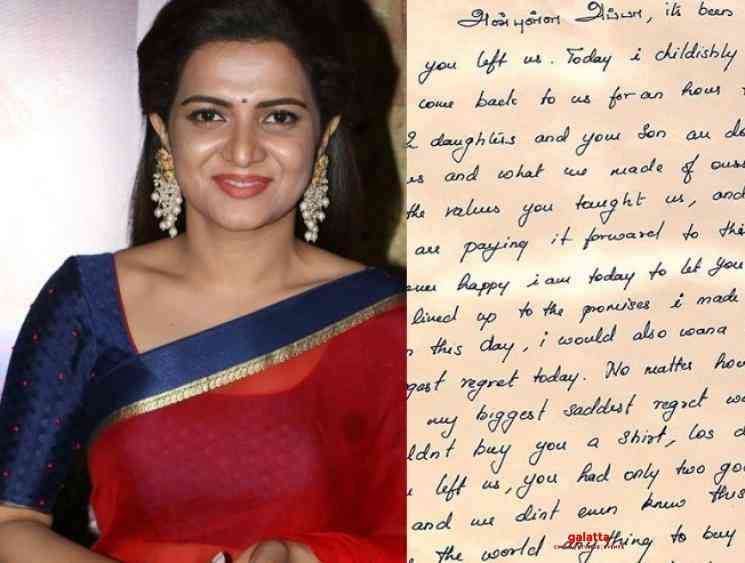 அன்புள்ள அப்பா, its been
you left us. Today i childishly
come back to us for an hour
2 daughters and your son are do
us and what we made of ours
the values you taught us, and
are paying it forward to the
ever happy i am today to let you
lived up to the promises i made
n this day, i would also wana
gest regret today. No matter how
my biggest saddest regret w
ldnt buy you a shirt, cos d
left us, you had only two go
and we dint even knew this
the world anything to buy
galatta